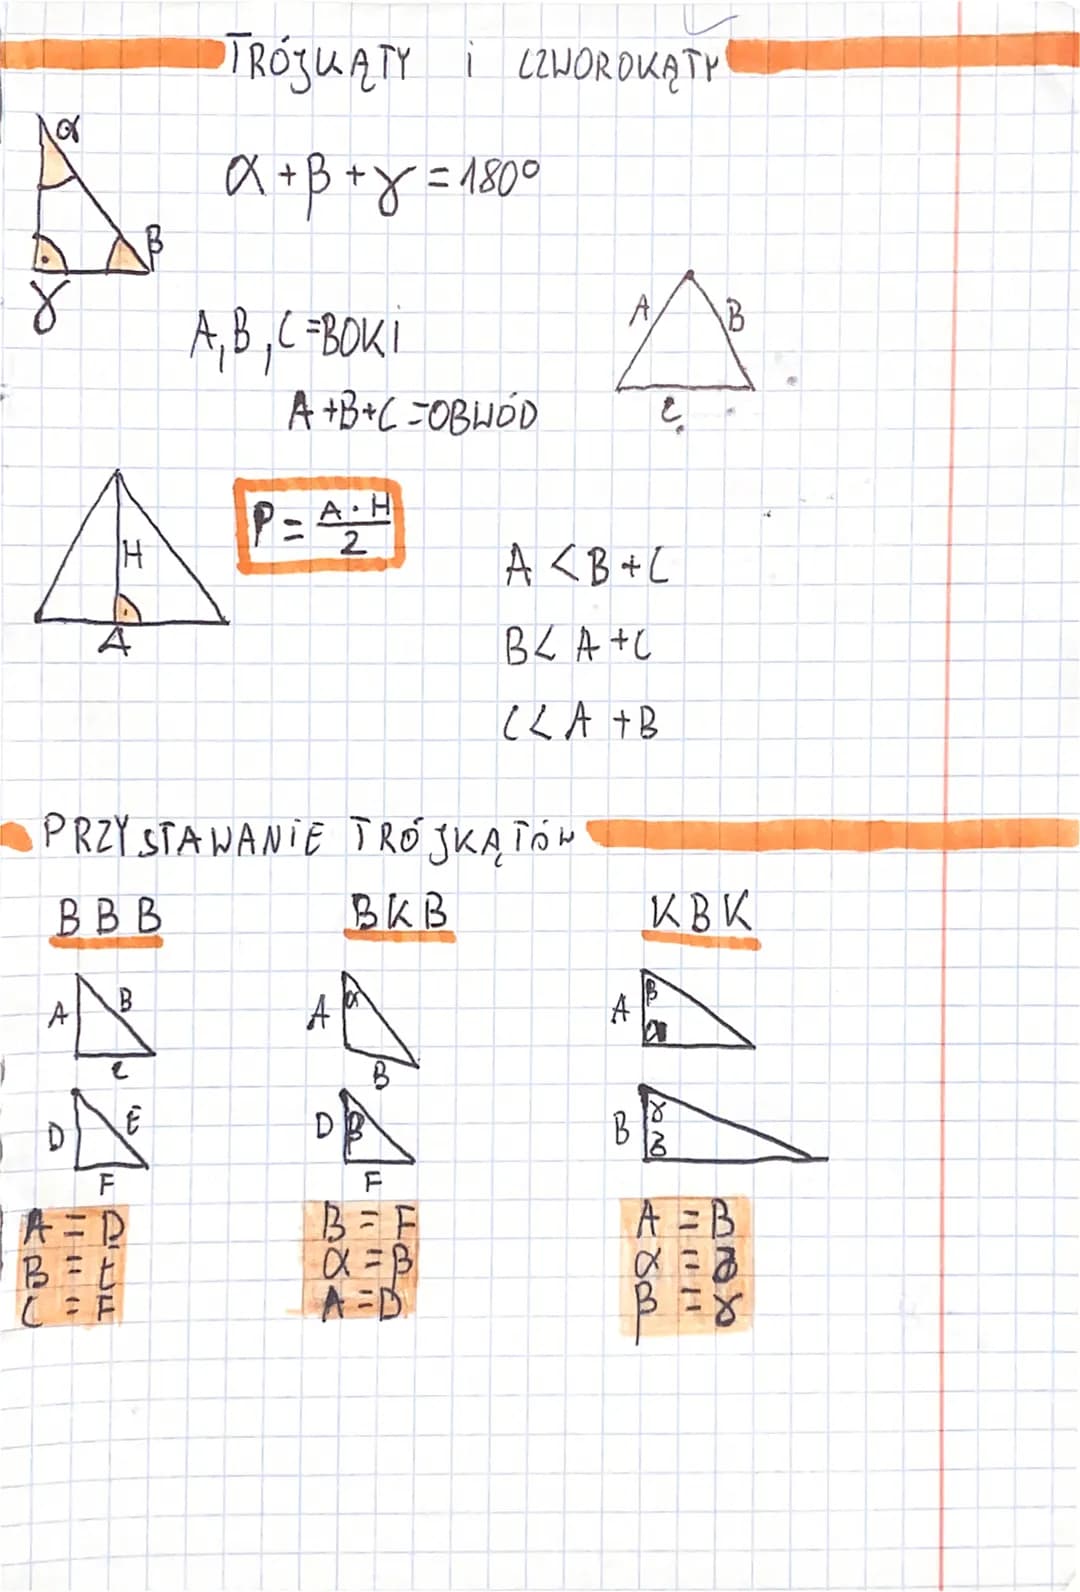 TRÓJKĄTY i CZWOROKĄTY
α
α + β + γ = 180°
β
γ
A, B, C = BOKi
A B
C
A + B + C = OBWÓD
P = A · H / 2
H
A
A < B + C
B < A + C
C < A + B
PRZYSTAWANiE TRÓJKĄTÓW
B B B
A B
C
D E
F
A = D
B = E
C = F
B K B
A α
B
D β
F
B = F
α = β
A = D
K B K
A β
α
B γ
A = B
α =
β = γ